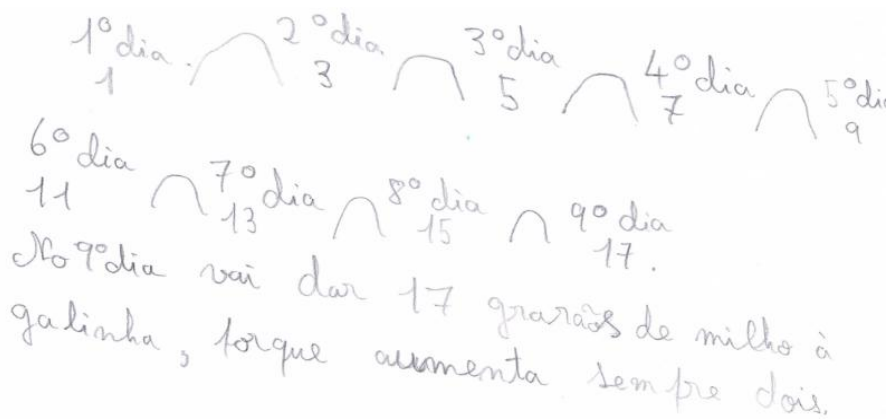 1º dia. 2º dia 3º dia 4º dia 5º dia
1 3 5 7 9
6º dia 7º dia 8º dia 9º dia
11 13 15 17.
No 9º dia vai dar 17 grarãos de milho à
galinha, porque aumenta sempre dois.